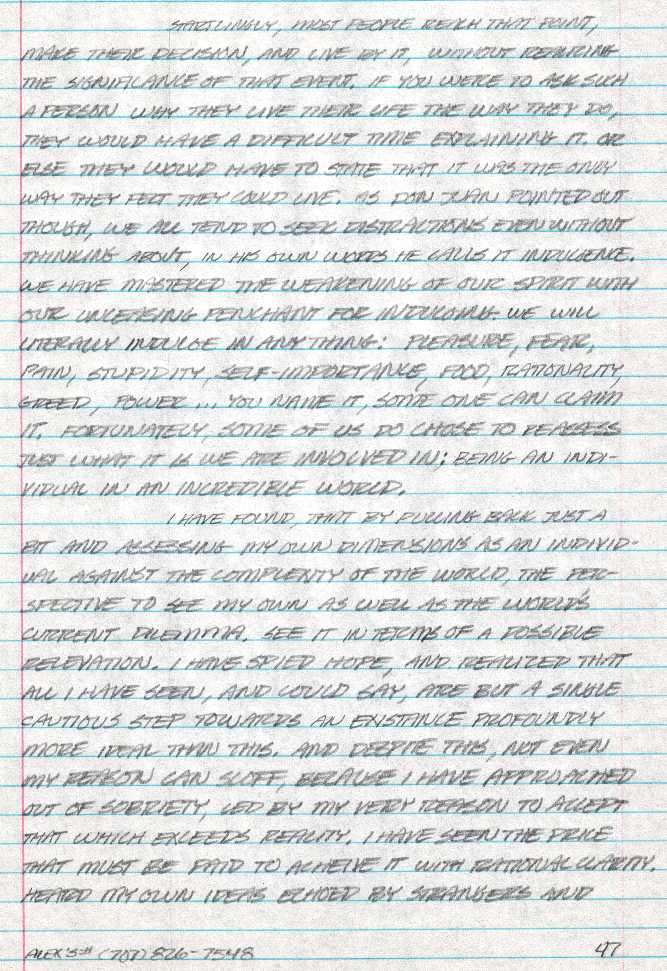 STARTLINGLY, MOST PEOPLE REACH THAT POINT,
MAKE THEIR DECISION, AND LIVE BY IT, WITHOUT REALIZING
THE SIGNIFICANCE OF THAT EVENT. IF YOU WERE TO ASK SUCH
A PERSON WHY THEY LIVE THEIR LIFE THE WAY THEY DO,
THEY WOULD HAVE A DIFFICULT TIME EXPLAINING IT. OR
ELSE THEY WOULD HAVE TO STATE THAT IT WAS THE ONLY
WAY THEY FELT THEY COULD LIVE. AS DON JUAN POINTED OUT
THOUGH, WE ALL TEND TO SEEK DISTRACTIONS EVEN WITHOUT
THINKING ABOUT, IN HIS OWN WORDS HE CALLS IT INDULGENCE.
WE HAVE MASTERED THE WEAKENING OF OUR SPIRIT WITH
OUR UNCEASING PENCHANT FOR INDULGING. WE WILL
LITERALLY INDULGE IN ANYTHING: PLEASURE, FEAR,
PAIN, STUPIDITY, SELF-IMPORTANCE, FOOD, RATIONALITY,
GREED, POWER... YOU NAME IT, SOME ONE CAN CLAIM
IT. FORTUNATELY, SOME OF US DO CHOSE TO REASSESS
JUST WHAT IT IS WE ARE INVOLVED IN; BEING AN INDI-
VIDUAL IN AN INCREDIBLE WORLD.
I HAVE FOUND, THAT BY PULLING BACK JUST A
BIT AND ASSESSING MY OWN DIMENSIONS AS AN INDIVID-
UAL AGAINST THE COMPLEXITY OF THE WORLD, THE PER-
SPECTIVE TO SEE MY OWN AS WELL AS THE WORLD'S
CURRENT DILEMMA. SEE IT IN TERMS OF A POSSIBLE
RELEVATION. I HAVE SPIED HOPE, AND REALIZED THAT
ALL I HAVE SEEN, AND COULD SAY, ARE BUT A SINGLE
CAUTIOUS STEP TOWARDS AN EXISTANCE PROFOUNDLY
MORE IDEAL THAN THIS. AND DESPITE THIS, NOT EVEN
MY REASON CAN SCOFF, BECAUSE I HAVE APPROACHED
OUT OF SOBRIETY, LED BY MY VERY REASON TO ACCEPT
THAT WHICH EXCEEDS REALITY. I HAVE SEEN THE PRICE
THAT MUST BE PAID TO ACHEIVE IT WITH RATIONAL CLARITY.
HEARD MY OWN IDEAS ECHOED BY STRANGERS AND
ALEX'S # (707) 826-7548 47